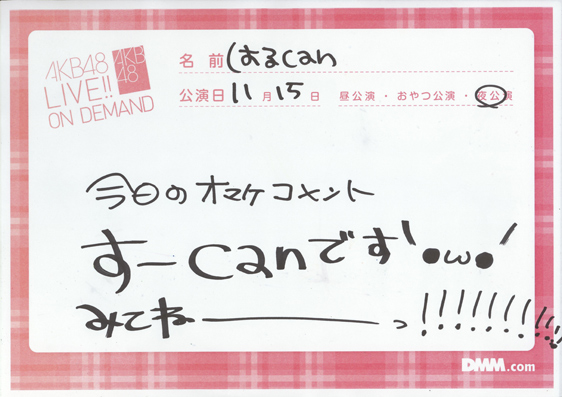 AKB48
LIVE!!
ON DEMAND
AKB
48
名前 はるcan
公演日 11月15日 昼公演・おやつ公演・夜公演
今日のオマケコメント
すーcanです'●ω●'
みてねーーっ!!!!!!!!!!
DMM.com